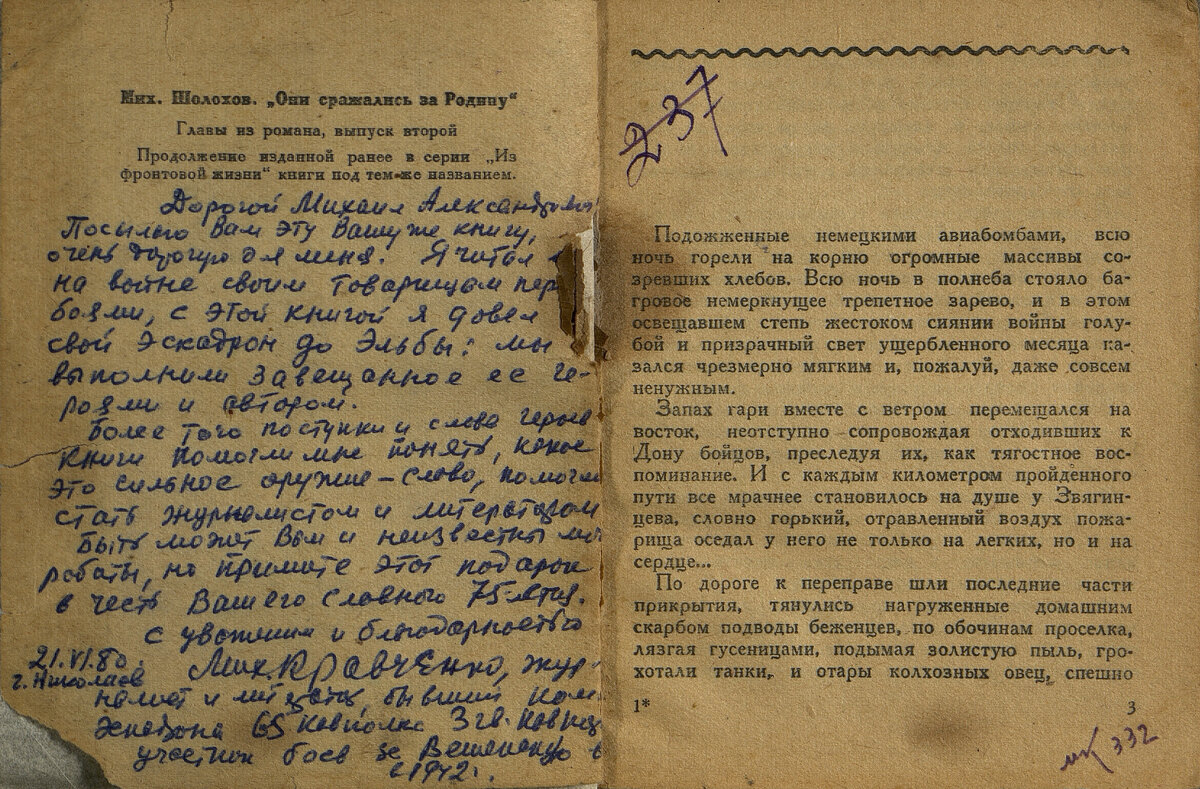 Мих. Шолохов. „Они сражались за Родину“
Главы из романа, выпуск второй
Продолжение изданной ранее в серии „Из
фронтовой жизни“ книги под тем же названием.
Дорогой Михаил Александрович
Посылаю Вам эту Вашу же книгу,
очень дорогую для меня. Я читал
на войне своим товарищам пер
боями, с этой книгой я довел
свой эскадрон до Эльбы: мы
выполнили завещанное ее ге-
роями и автором.
Более того поступки и слова героев
книги помогли мне понять, какое
это сильное оружие – слово, помогли
стать журналистом и литератором
Быть может Вам и неизвестны мо
работы, но примите этот подарок
в честь Вашего славного 75-летия.
С уважением и благодарностью
21.VI.80.
г. Николаев
Мих. Кравченко, жур-
налист и литератор, бывший ком
эскадрона 65 кавполка
участник боев за Вешенскую в
1942 г.
237
Подожженные немецкими авиабомбами, всю
ночь горели на корню огромные массивы со-
зревших хлебов. Всю ночь в полнеба стояло ба-
гровое немеркнущее трепетное зарево, и в этом
освещавшем степь жестоком сиянии войны голу-
бой и призрачный свет ущербленного месяца ка-
зался чрезмерно мягким и, пожалуй, даже совсем
ненужным.
Запах гари вместе с ветром перемещался на
восток, неотступно сопровождая отходивших к
Дону бойцов, преследуя их, как тягостное вос-
поминание. И с каждым километром пройденного
пути все мрачнее становилось на душе у Звягин-
цева, словно горький, отравленный воздух пожа-
рища оседал у него не только на легких, но и на
сердце...
По дороге к переправе шли последние части
прикрытия, тянулись нагруженные домашним
скарбом подводы беженцев, по обочинам проселка,
лязгая гусеницами, подымая золистую пыль, гро-
хотали танки, и отары колхозных овец, спешно
1*
3
332